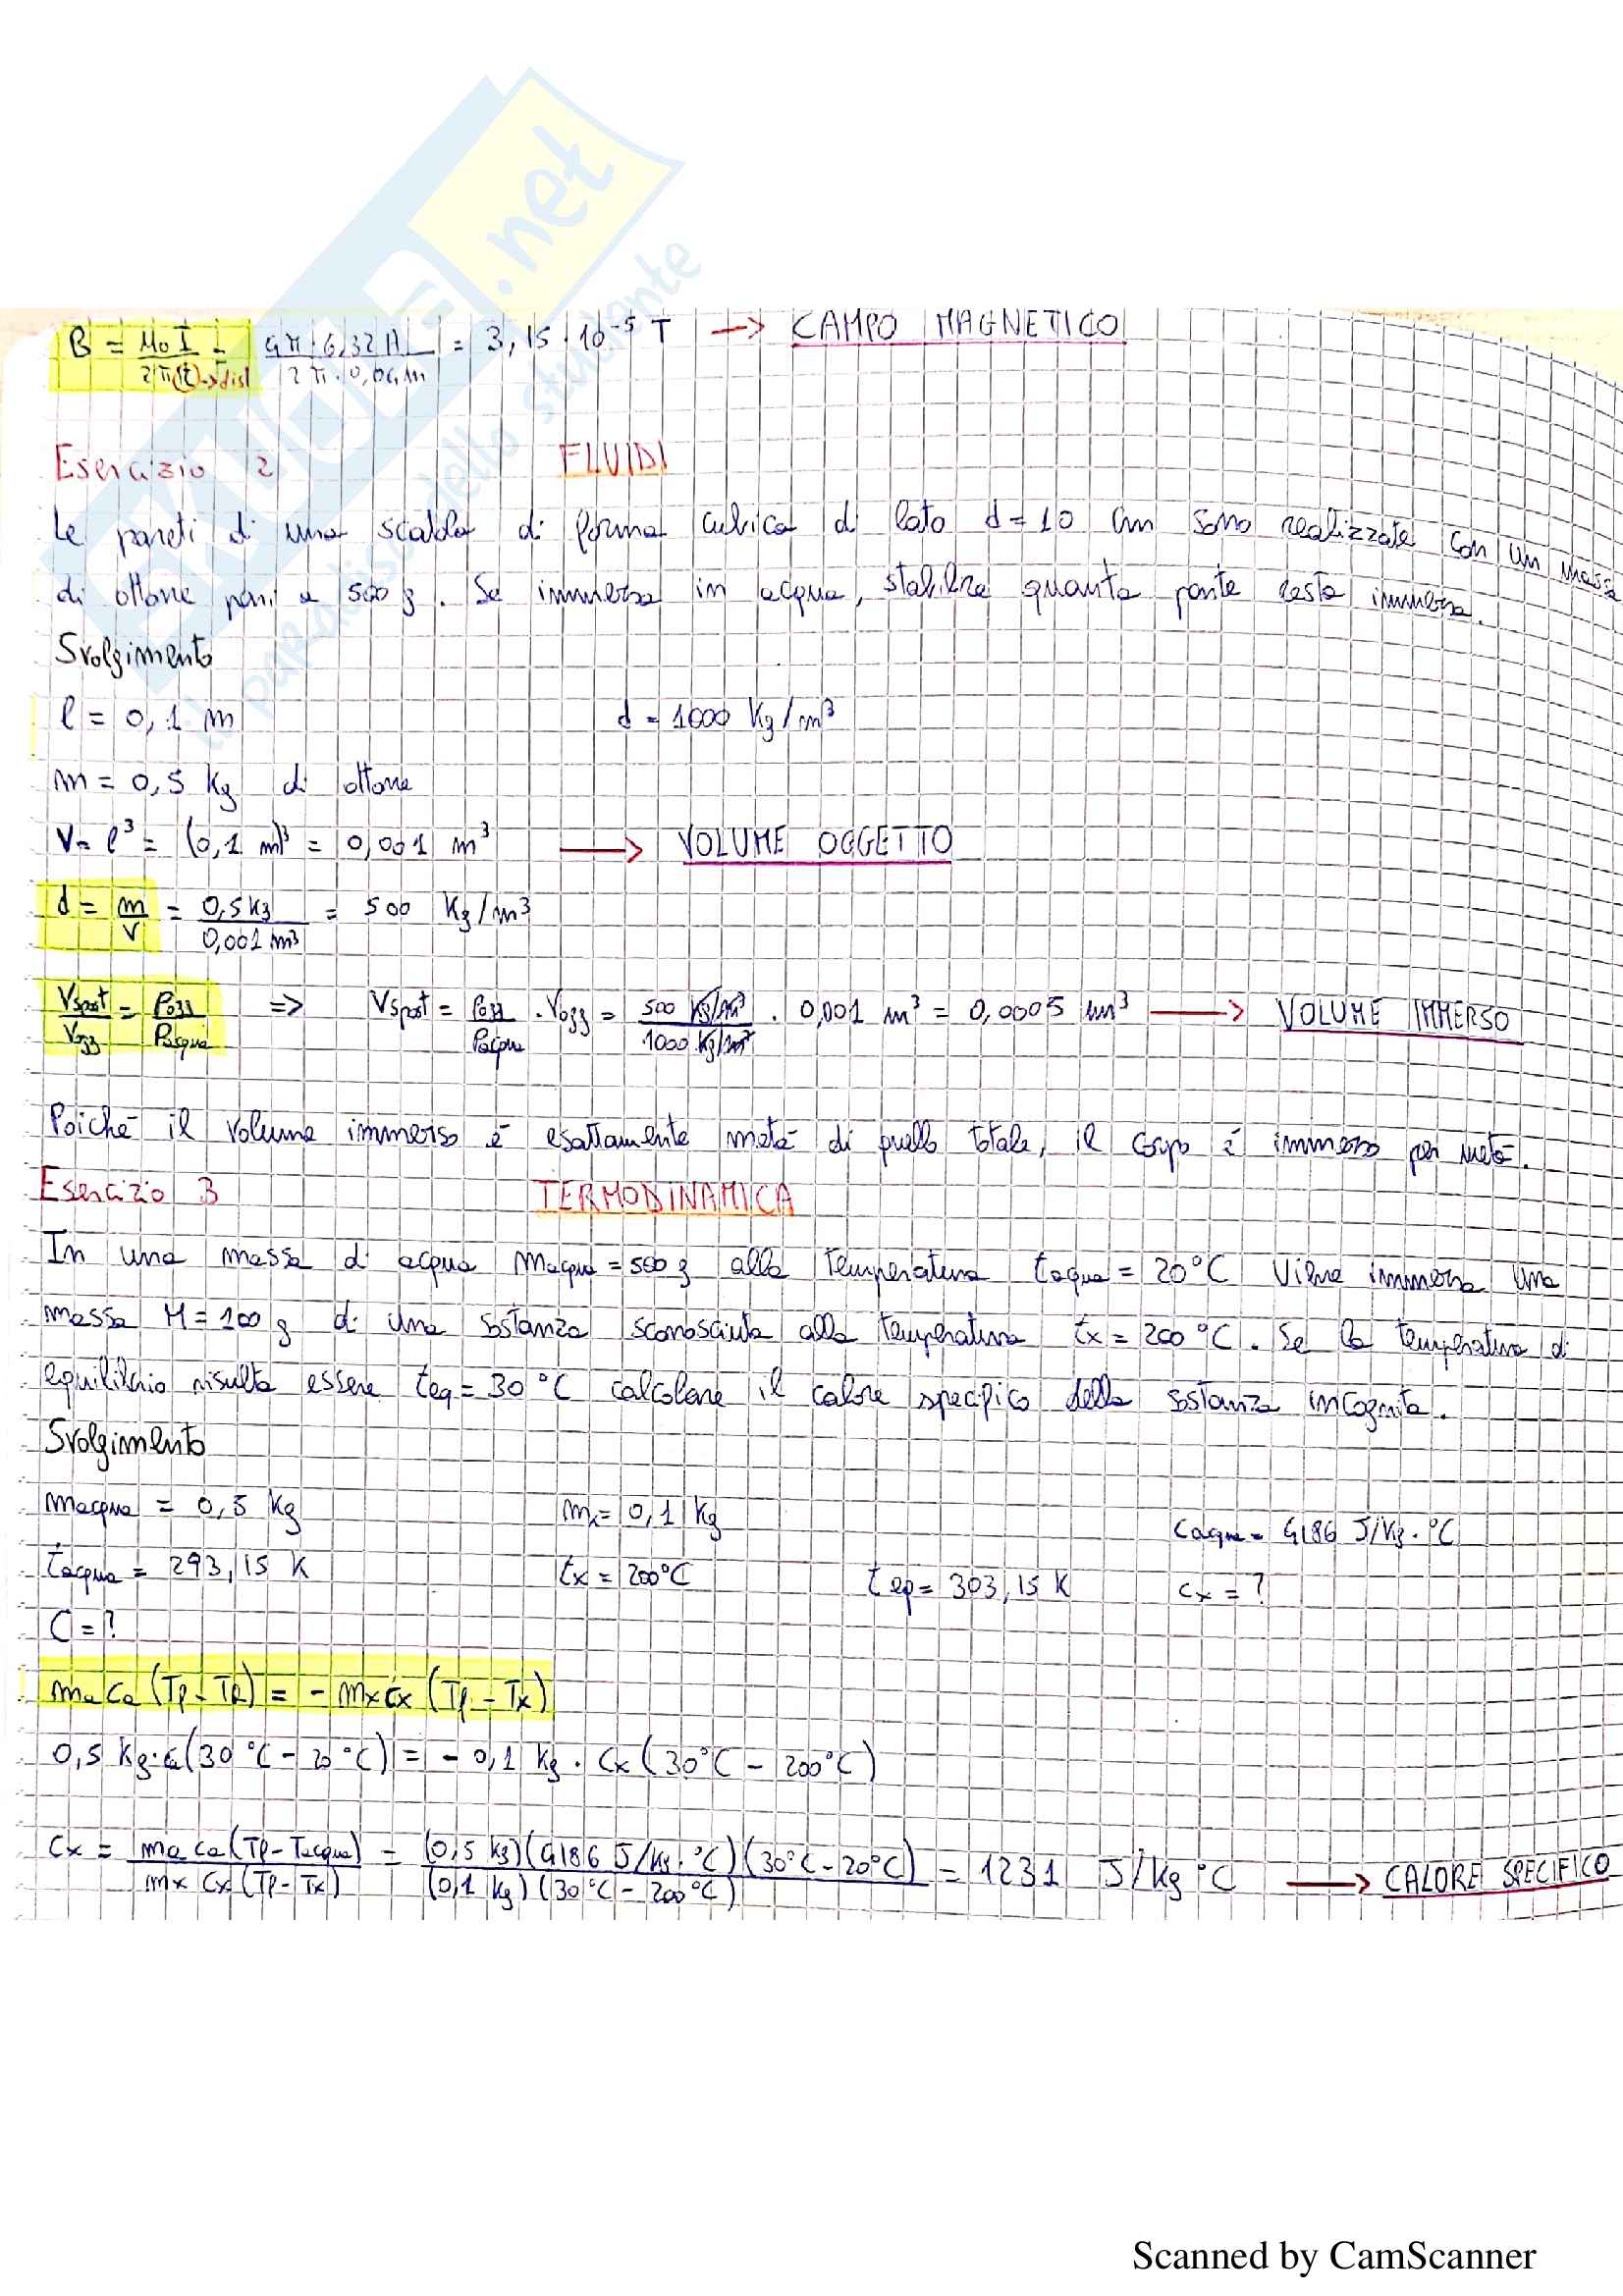 SKUOLA.net
il paradiso dello studente
B = μ0 I / 2π(r)→dist = 4π·6,32A / 2π·0,04m = 3,15·10⁻⁵ T → CAMPO MAGNETICO
Esercizio 2 FLUIDI
Le pareti di una scatola di forma cubica di lato d=10 cm sono realizzate con un massa
di ottone pari a 500 g. Se immersa in acqua, stabilire quanta parte resta immersa.
Svolgimento
l = 0,1 m d = 1000 Kg/m³
m = 0,5 Kg di ottone
V= l³ = (0,1 m)³ = 0,001 m³ → VOLUME OGGETTO
d = m/V = 0,5 Kg / 0,001 m³ = 500 Kg/m³
Vspost/Vogg = Pogg/Pacqua => Vspost = Pogg/Pacqua · Vogg = 500 Kg/m³ / 1000 Kg/m³ · 0,001 m³ = 0,0005 m³ → VOLUME IMMERSO
Poiché il volume immerso è esattamente metà di quello totale, il corpo è immerso per metà.
Esercizio 3 TERMODINAMICA
In una massa di acqua Macqua = 500 g alla temperatura tacqua = 20°C viene immersa una
massa M = 100 g di una sostanza sconosciuta alla temperatura tx = 200 °C. Se la temperatura di
equilibrio risulta essere teq = 30 °C calcolare il calore specifico della sostanza incognita.
Svolgimento
macqua = 0,5 Kg mx = 0,1 Kg cacqua = 4186 J/Kg·°C
tacqua = 293,15 K tx = 200°C teq = 303,15 K cx = ?
C = ?
ma ca (Tf - Ta) = - mx cx (Tf - Tx)
0,5 Kg·ca(30 °C - 20 °C) = - 0,1 Kg · Cx (30°C - 200°C)
Cx = ma ca (Tf - Tacqua) / mx Cx (Tf - Tx) = (0,5 Kg)(4186 J/Kg·°C)(30°C - 20°C) / (0,1 Kg)(30°C - 200°C) = 1231 J/Kg °C → CALORE SPECIFICO
Scanned by CamScanner